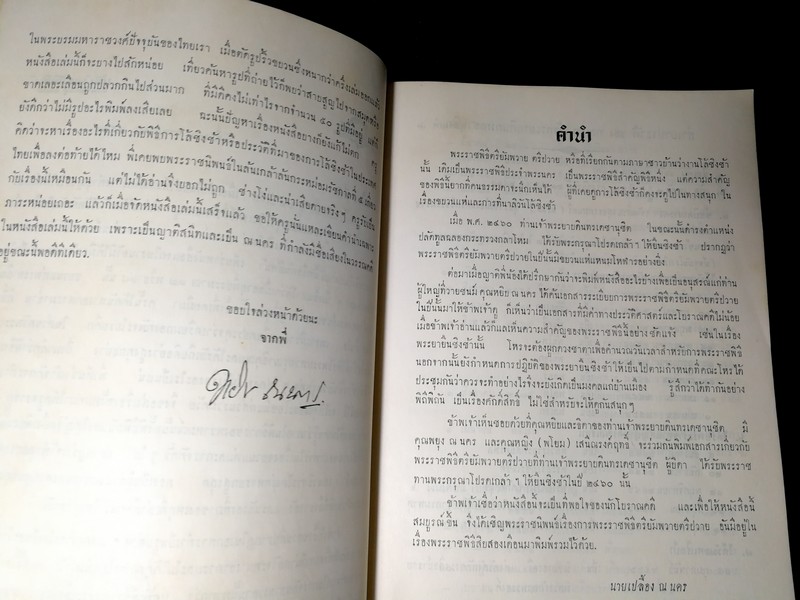 ในพระบรมมหาราชวงศ์ปัจจุบันของไทยเรา เมื่อตัดรูปริ้วขบวนซึ่งหนากว่าครึ่งเล่มออกแล้ว
หนังสือเล่มนี้ก็จะบางไปสักหน่อย เที่ยวค้นหารูปที่ถ่ายไว้ก็พบว่าสาบสูญไปจากสมุดหรือ
ขาดเลอะเลือนถูกปลวกกินไปส่วนมาก ที่มิติคงไม่เท่าไรจากจำนวน ๘๐ รูปที่มีอยู่
ยังดีกว่าไม่มีรูปอะไรพิมพ์ลงเสียเลย ฉะนั้นปัญหาเรื่องหนังสือบางก็ยังแก้ไม่ตก
คิดว่าจะหาเรื่องอะไรที่เกี่ยวกับพิธีการโล้ชิงช้าหรือประวัติที่มาของการโล้ชิงช้าในประเทศ
ไทยเพื่อลงต่อท้ายได้ไหม พี่เคยพบพระราชนิพนธ์ในล้นเกล้าล้นกระหม่อมรัชกาลที่ ๕ เกี่ยว
กับเรื่องนี้เหมือนกัน แต่ไม่ได้อ่านจึงบอกไม่ถูก ช่างโง่และน่าเสียดายจริงๆ ครูรับเป็น
ภาระหน่อยเถอะ แล้วก็เมื่อจัดหนังสือเล่มนี้เสร็จแล้ว ขอให้ครูนั่นแหละเขียนคำนำเฉพาะ
ในหนังสือเล่มนี้ให้ด้วย เพราะเป็นญาติสนิทและเป็น ณ นคร ที่กำลังมีชื่อเสียงในวรรณคดี
อยู่ขณะนี้พอดีทีเดียว.
ขอบใจล่วงหน้าด้วยนะ
จากพี่
คำนำ
พระราชพิธีตรียัมพวาย ตรีปวาย หรือที่เรียกกันตามภาษาชาวบ้านว่างานโล้ชิงช้า
นั้น เดิมเป็นพระราชพิธีประจำพระนคร เป็นพระราชพิธีสำคัญพิธีหนึ่ง แต่ความสำคัญ
ของพิธีนี้ยากที่คนธรรมดาจะนึกเห็นได้ ผู้ที่เคยดูการโล้ชิงช้าก็คงจะดูไปในทางสนุก ใน
เรื่องขบวนแห่และการที่นาลิวันโล้ชิงช้า
เมื่อ พ.ศ. ๒๔๖๐ ท่านเจ้าพระยาบดินทรเดชานุชิต ในขณะนั้นดำรงตำแหน่ง
ปลัดทูลฉลองกระทรวงกลาโหม ได้รับพระกรุณาโปรดเกล้า ฯ ให้ยืนชิงช้า ปรากฏว่า
พระราชพิธีตรียัมพวายตรีปวายในปีนั้นมีขบวนแห่แหนมโหฬารอย่างยิ่ง
ต่อมาเมื่อญาติพี่น้องได้ปรึกษากันว่าจะพิมพ์หนังสืออะไรบ้างเพื่อเป็นอนุสรณ์แก่ท่าน
ผู้ใหญ่ที่วายชนม์ คุณหยิบ ณ นคร ได้ค้นเอกสารระเบียบการพระราชพิธีตรียัมพวายตรีปวาย
ในปีนั้นมาให้ข้าพเจ้าดู ก็เห็นว่าเป็นเอกสารที่มีค่าทางประวัติศาสตร์และโบราณคดีไม่น้อย
เมื่อข้าพเจ้าอ่านแล้วก็แลเห็นความสำคัญของพระราชพิธีนี้อย่างชัดแจ้ง เช่นในเรื่อง
พระยายืนชิงช้านั้น โหรจะต้องผูกดวงชาตาเพื่อคำนวณวันเวลาสำหรับการพระราชพิธี
นอกจากนั้นยังกำหนดการปฏิบัติของพระยายืนชิงช้าให้เป็นไปตามกำหนดที่คณะโหรได้
ประชุมกันว่าควรจะทำอย่างไรจึงจะบังเกิดเป็นมงคลแก่บ้านเมือง รู้สึกว่าได้ทำกันอย่าง
พิถีพิถัน เป็นเรื่องศักดิ์สิทธิ์ ไม่ใช่สำหรับจะให้ดูกันสนุกๆ
ข้าพเจ้าเห็นชอบด้วยที่คุณหยิบและธิดาของท่านเจ้าพระยาบดินทรเดชานุชิต มี
คุณพยุง ณ นคร และคุณหญิง (พโยม) เสนีณรงค์ฤทธิ์ จะร่วมกันพิมพ์เอกสารเกี่ยวกับ
พระราชพิธีตรียัมพวายตรีปวายที่ท่านเจ้าพระยาบดินทรเดชานุชิต ผู้บิดา ได้รับพระราช
ทานพระกรุณาโปรดเกล้า ฯ ให้ยืนชิงช้าในปี ๒๔๖๐ นั้น
ข้าพเจ้าเชื่อว่าหนังสือนี้จะเป็นที่พอใจของนักโบราณคดี และเพื่อให้หนังสือนี้
สมบูรณ์ขึ้น จึงได้เชิญพระราชนิพนธ์เรื่องการพระราชพิธีตรียัมพวายตรีปวาย อันมีอยู่ใน
เรื่องพระราชพิธีสิบสองเดือนมาพิมพ์รวมไว้ด้วย.
นายเปลื้อง ณ นคร